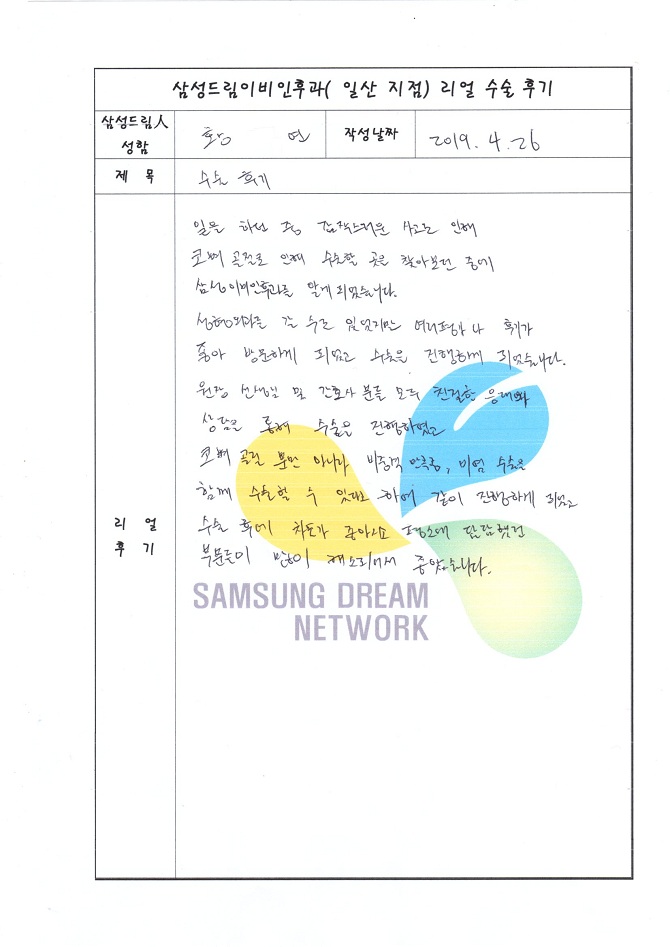 삼성드림이비인후과( 일산 지점) 리얼 수술 후기
삼성드림人 성함
황 연
작성날짜
2019. 4. 26
제 목
수술 후기
리 얼 후 기
일을 하던 중 갑작스러운 사고로 인해
코뼈 골절로 인해 수술할 곳을 찾아보던 중에
삼성이비인후과를 알게 되었습니다.
성형외과를 갈 수도 있었지만 여러평이나 후기가
좋아 방문하게 되었고 수술을 진행하게 되었습니다.
원장 선생님 및 간호사 분들 모두 친절한 응대와
상담을 통해 수술을 진행하였고
코뼈 골절 뿐만 아니라 비중격 만곡증, 비염 수술을
함께 수술할 수 있다고 하여 같이 진행하게 되었고
수술 후에 치료가 좋아서 평소에 답답했던
부분들이 많이 해소되어서 좋았습니다.
SAMSUNG DREAM
NETWORK